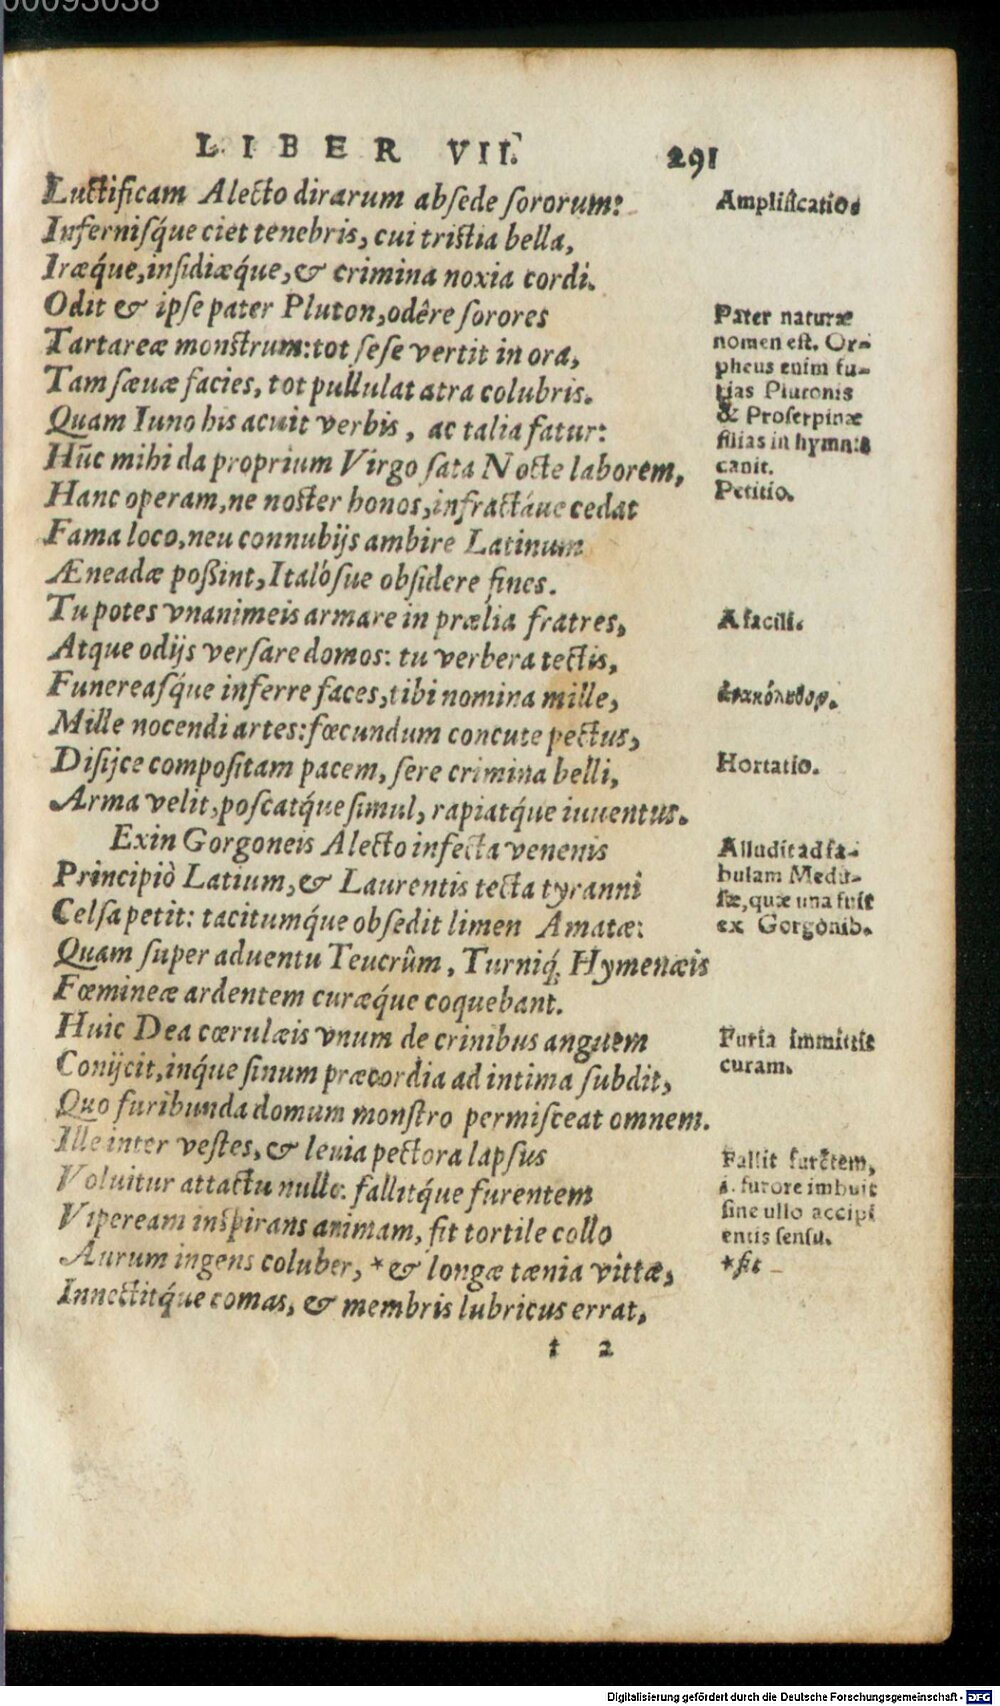 00093038
LIBER VII. 291
Luctificam Alecto dirarum absede sororum:
Infernisq́ue ciet tenebris, cui tristia bella,
Iræq́ue, insidiæq́ue, & crimina noxia cordi.
Odit & ipse pater Pluton, odêre sorores
Tartareæ monstrum: tot sese vertit in ora,
Tam sæuæ facies, tot pullulat atra colubris.
Quam Iuno his acuit verbis, ac talia fatur:
Hūc mihi da proprium Virgo sata Nocte laborem,
Hanc operam, ne noster honos, infractáue cedat
Fama loco, neu connubijs ambire Latinum
Æneadæ poßint, Italósue obsidere fines.
Tu potes vnanimeis armare in prælia fratres,
Atque odijs versare domos: tu verbera tectis,
Funereasq́ue inferre faces, tibi nomina mille,
Mille nocendi artes: fœcundum concute pectus,
Disijce compositam pacem, sere crimina belli,
Arma velit, poscatq́ue simul, rapiatq́ue iuuentus.
Exin Gorgoneis Alecto infecta venenis
Principiò Latium, & Laurentis tecta tyranni
Celsa petit: tacitumq́ue obsedit limen Amatæ:
Quam super aduentu Teucrûm, Turniq́; Hymenæis
Fœmineæ ardentem curæq́ue coquebant.
Huic Dea cœrulæis vnum de crinibus anguem
Conijcit, inq́ue sinum præcordia ad intima subdit,
Quo furibunda domum monstro permisceat omnem.
Ille inter vestes, & leuia pectora lapsus
Voluitur attactu nullo: fallitq́ue furentem
Vipeream inspirans animam, fit tortile collo
Aurum ingens coluber, *& longæ tænia vittæ,
Innectitq́ue comas, & membris lubricus errat,
t 2
Amplificatio.
Pater naturæ
nomen est. Or-
pheus enim fu-
rias Plutonis
& Proserpinæ
filias in hymnis
canit.
Petitio.
A facili.
Hortatio.
Alludit ad fa-
bulam Medu-
sæ, quæ una fuit
ex Gorgonib.
Furia immittit
curam.
Fallit furētem,
i. furore imbuit
sine ullo accipi
entis sensu.
*fit
Digitalisierung gefördert durch die Deutsche Forschungsgemeinschaft - DFG